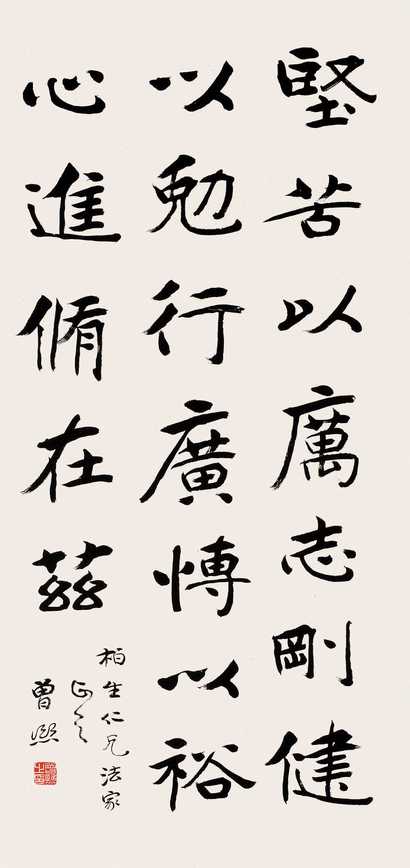 堅苦以厲志剛健
以勉行廣博以裕
心進脩在茲
柏生仁兄法家
正之
曾熙